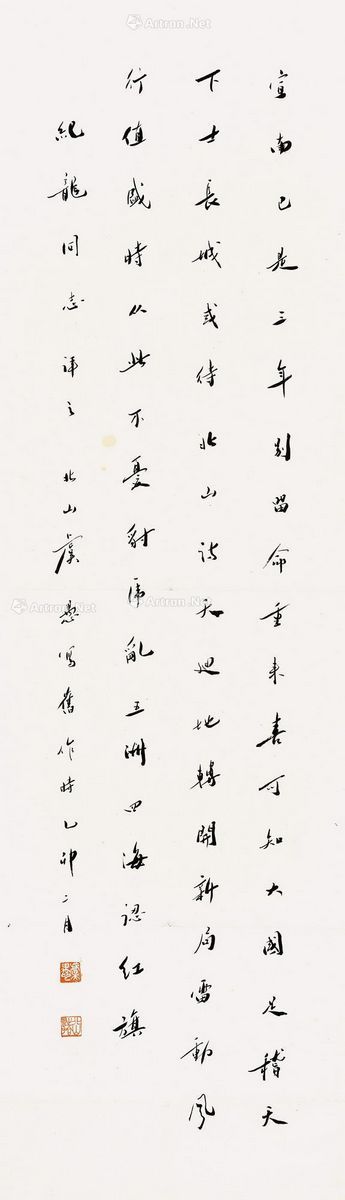 宣南已是三年别留命重来喜可知大國足稽天
下士長城或待北山詩天迴地轉開新局雷動風
行值盛時从此不憂豺虎亂五洲四海認红旗
紀龍同志評之北山虞愚寫舊作時乙卯二月
Artron.Net
Artron.Net
Artron.Net
Artron.Net